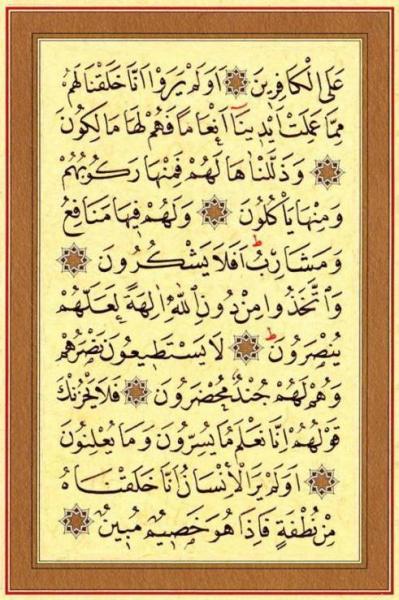 عَلَى الْكَافِرِينَ ۞ اَوَلَمْ يَرَوْا اَنَّا خَلَقْنَا لَهُمْ
مِمَّا عَمِلَتْ اَيْدِينَٓا اَنْعَامًا فَهُمْ لَهَا مَالِكُونَ
۞ وَذَلَّلْنَاهَا لَهُمْ فَمِنْهَا رَكُوبُهُمْ
وَمِنْهَا يَاْكُلُونَ ۞ وَلَهُمْ فِيهَا مَنَافِعُ
وَمَشَارِبُ ط اَفَلَا يَشْكُرُونَ ۞
وَاتَّخَذُوا مِنْ دُونِ اللّٰهِ اٰلِهَةً لَعَلَّهُمْ
يُنْصَرُونَ ط ۞ لَا يَسْتَطِيعُونَ نَصْرَهُمْ
وَهُمْ لَهُمْ جُنْدٌ مُحْضَرُونَ ۞ فَلَا يَحْزُنْكَ
قَوْلُهُمْ اِنَّا نَعْلَمُ مَا يُسِرُّونَ وَمَا يُعْلِنُونَ
۞ اَوَلَمْ يَرَ الْاِنْسَانُ اَنَّا خَلَقْنَاهُ
مِنْ نُطْفَةٍ فَاِذَا هُوَ خَصِيمٌ مُبِينٌ ۞